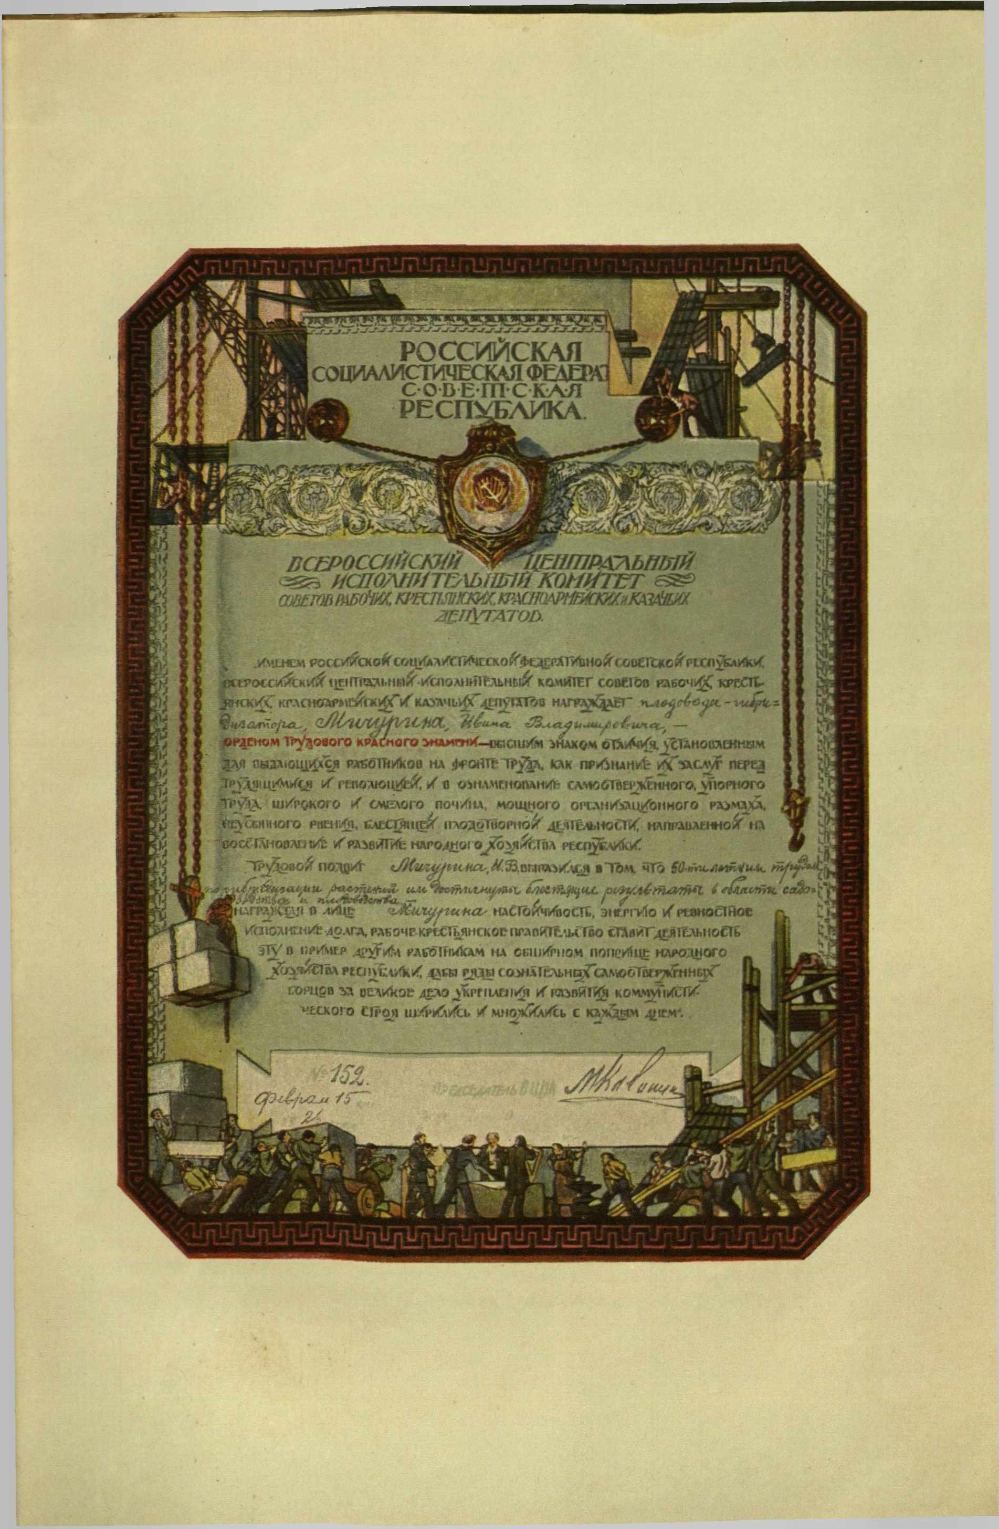 РОССИЙСКАЯ
СОЦИАЛИСТИЧЕСКАЯ ФЕДЕРАТ
С·О·В·Е·Т·С·К·А·Я
РЕСПУБЛИКА.
ВСЕРОССИЙСКИЙ ЦЕНТРАЛЬНЫЙ
ИСПОЛНИТЕЛЬНЫЙ КОМИТЕТ
СОВЕТОВ РАБОЧИХ, КРЕСТЬЯНСКИХ, КРАСНОАРМЕЙСКИХ и КАЗАЧЬИХ
ДЕПУТАТОВ.
„ИМЕНЕМ РОССИЙСКОЙ СОЦИАЛИСТИЧЕСКОЙ ФЕДЕРАТИВНОЙ СОВЕТСКОЙ РЕСПУБЛИКИ,
ВСЕРОССИЙСКИЙ ЦЕНТРАЛЬНЫЙ ИСПОЛНИТЕЛЬНЫЙ КОМИТЕТ СОВЕТОВ РАБОЧИХ, КРЕСТЬ-
ЯНСКИХ, КРАСНОАРМЕЙСКИХ И КАЗАЧЬИХ ДЕПУТАТОВ НАГРАЖДАЕТ плодовода-гибри=
дизатора, Мичурина, Ивана Владимировича, —
ОРДЕНОМ ТРУДОВОГО КРАСНОГО ЗНАМЕНИ—ВЫСШИМ ЗНАКОМ ОТЛИЧИЯ, УСТАНОВЛЕННЫМ
ДЛЯ ВЫДАЮЩИХСЯ РАБОТНИКОВ НА ФРОНТЕ ТРУДА, КАК ПРИЗНАНИЕ ИХ ЗАСЛУГ ПЕРЕД
ТРУДЯЩИМИСЯ И РЕВОЛЮЦИЕЙ, И В ОЗНАМЕНОВАНИЕ САМООТВЕРЖЕННОГО, УПОРНОГО
ТРУДА, ШИРОКОГО И СМЕЛОГО ПОЧИНА, МОЩНОГО ОРГАНИЗАЦИОННОГО РАЗМАХА,
НЕУСЫПНОГО РВЕНИЯ, БЛЕСТЯЩЕЙ ПЛОДОТВОРНОЙ ДЕЯТЕЛЬНОСТИ, НАПРАВЛЕННОЙ НА
ВОССТАНОВЛЕНИЕ И РАЗВИТИЕ НАРОДНОГО ХОЗЯЙСТВА РЕСПУБЛИКИ.
ТРУДОВОЙ ПОДВИГ Мичурина, И.В. ВЫРАЗИЛСЯ В ТОМ, ЧТО 50-ти летним трудом
по гибридизации растений им достигнуты блестящие результаты в области садо-
водства и плодоводства.
НАГРАЖДАЯ В ЛИЦЕ Мичурина НАСТОЙЧИВОСТЬ, ЭНЕРГИЮ И РЕВНОСТНОЕ
ИСПОЛНЕНИЕ ДОЛГА, РАБОЧЕ-КРЕСТЬЯНСКОЕ ПРАВИТЕЛЬСТВО СТАВИТ ДЕЯТЕЛЬНОСТЬ
ЭТУ В ПРИМЕР ДРУГИМ РАБОТНИКАМ НА ОБШИРНОМ ПОПРИЩЕ НАРОДНОГО
ХОЗЯЙСТВА РЕСПУБЛИКИ, ДАБЫ РЯДЫ СОЗНАТЕЛЬНЫХ САМООТВЕРЖЕННЫХ
БОРЦОВ ЗА ВЕЛИКОЕ ДЕЛО УКРЕПЛЕНИЯ И РАЗВИТИЯ КОММУНИСТИ-
ЧЕСКОГО СТРОЯ ШИРИЛИСЬ И МНОЖИЛИСЬ С КАЖДЫМ ДНЕМ".
№ 152.
Февраля 15
26
ПРЕДСЕДАТЕЛЬ ВЦИК МКалинин